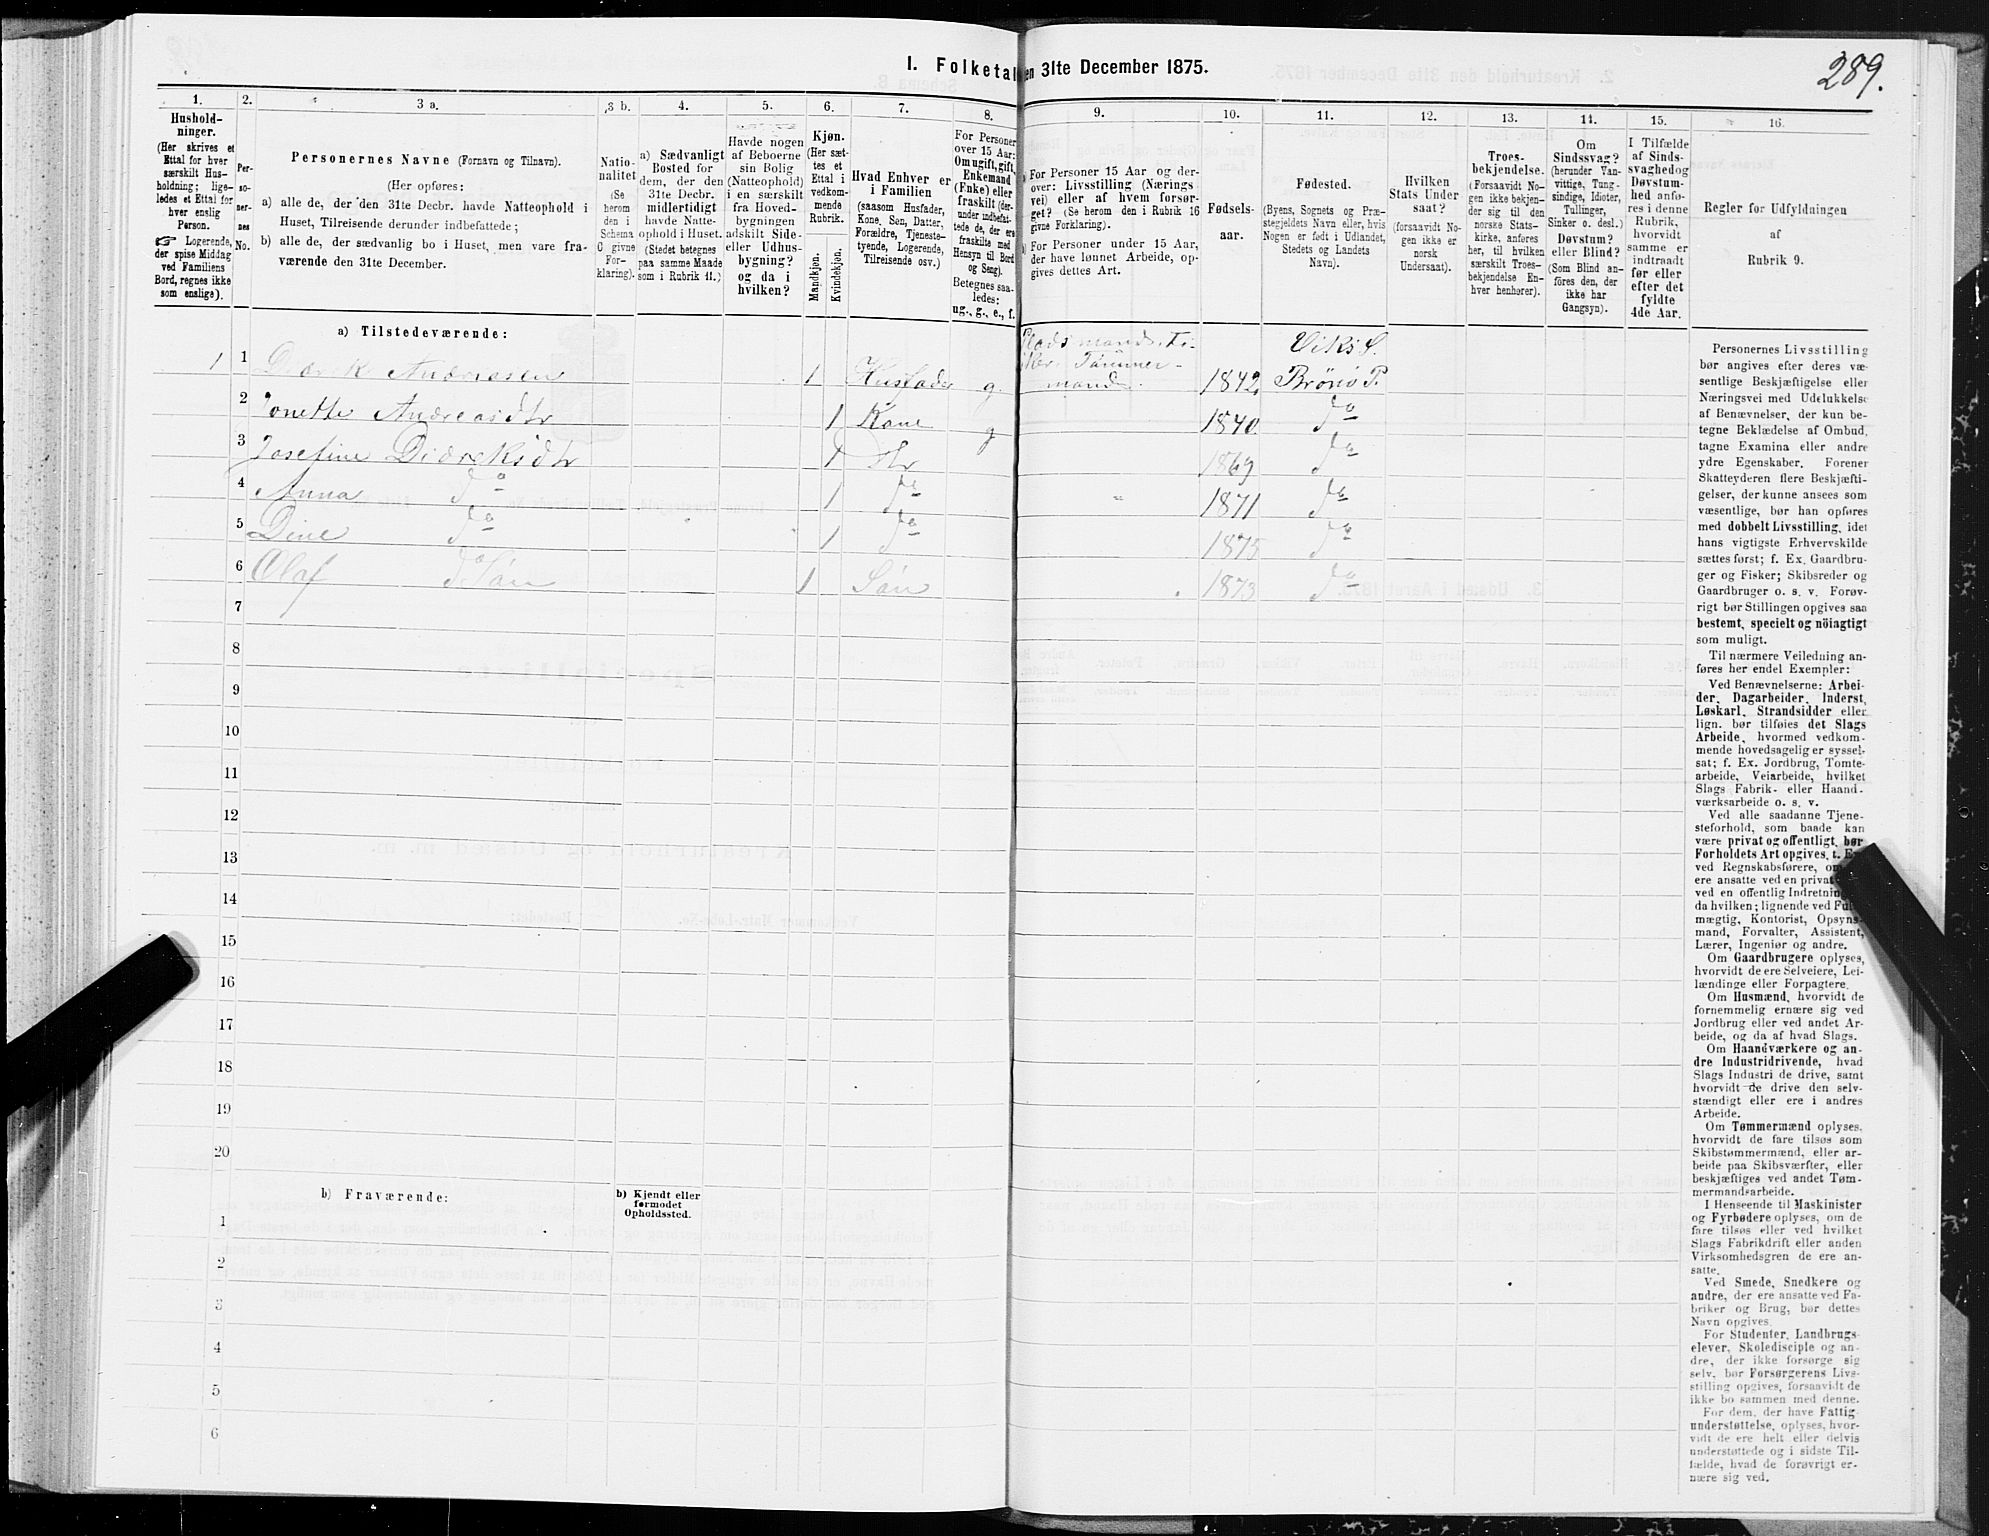 289.
I. Folketal den 31te December 1875.
1. 2. 3 a. 3 b. 4. 5. 6. 7. 8. 9. 10. 11. 12. 13. 14. 15. 16.
Hushold-
ninger.
(Her skrives et
Ettal for hver
særskilt Hus-
holdning; lige-
ledes et Ettal for
hver enslig
Person.
☞ Logerende,
der spise Middag
ved Familiens
Bord, regnes ikke
som enslige).
Per-
so-
ner-
nes
No.
Personernes Navne (Fornavn og Tilnavn).
(Her opføres:
a) alle de, der den 31te Decbr. havde Natteophold i
Huset, Tilreisende derunder indbefattede;
b) alle de, der sædvanlig bo i Huset, men vare fra-
værende den 31te December.
Natio-
nalitet
(Se
herom
den i
Schema
C givne
For-
klaring).
a) Sædvanligt
Bosted for
dem, der den
31te Decbr.
midlertidigt
havde Natte-
ophold i Huset.
(Stedet betegnes
paa samme Maade
som i Rubrik 11.)
Havde nogen
af Beboerne
sin Bolig
(Natteophold)
i en særskilt
fra Hoved-
bygningen
adskilt Side-
eller Udhus-
bygning?
og da i
hvilken?
Kjøn.
(Her sæt-
tes et
Ettal i
vedkom-
mende
Rubrik.
Mandkjøn.
Kvindekjøn.
Hvad Enhver er
i Familien
(saasom Husfader,
Kone, Søn, Datter,
Forældre, Tjeneste-
tyende, Logerende,
Tilreisende osv.)
For Personer
over 15 Aar:
Om ugift, gift,
Enkemand
(Enke) eller
fraskilt (der-
under indbefat-
tede de, der ere
fraskilte med
Hensyn til Bord
og Seng).
Betegnes saa-
ledes:
ug., g., e., f.
a) For Personer 15 Aar og der-
over: Livsstilling (Nærings-
vei) eller af hvem forsør-
get? (Se herom den i Rubrik 16
givne Forklaring).
b) For Personer under 15 Aar,
der have lønnet Arbeide, op-
gives dettes Art.
Fødsels-
aar.
Fødested.
(Byens, Sognets og Præ-
stegjeldets Navn eller, hvis
Nogen er født i Udlandet,
Stedets og Landets
Navn).
Hvilken
Stats Under
saat?
(forsaavidt No-
gen ikke er
norsk
Undersaat).
Troes-
bekjendelse.
(Forsaavidt No-
gen ikke bekjen-
der sig til den
norske Stats-
kirke, anføres
her, til hvilken
særskilt Troes-
bekjendelse En-
hver henhører).
Om
Sindssvag?
(herunder Van-
vittige, Tung-
sindige, Idioter,
Tullinger,
Sinker o. desl.)
Døvstum?
eller Blind?
(Som Blind an-
føres den, der
ikke har
Gangsyn).
I Tilfælde
af Sinds-
svaghed og
Døvstum-
hed anfø-
res i denne
Rubrik,
hvorvidt
samme er
indtraadt
før eller
efter det
fyldte
4de Aar.
Regler for Udfyldningen
af
Rubrik 9.
a) Tilstedeværende:
1 1 Andreasen 1 Husfader g. Pladsmand. Tømmer-mand. 1842 Vik S. Brönö P.
2 Jonette Andreasdtr 1 Kone g 1840 do
3 Josefine Didreksdtr 1 Dtr 1869 do
4 Anna do 1 do 1871 do
5 Dine do 1 do 1875 do
6 Olaf do Søn 1 Søn 1873 do
7
8
9
10
11
12
13
14
15
16
17
18
19
20
b) Fraværende:
b) Kjendt eller
formodet
Opholdssted.
1
2
3
4
5
6
Personernes Livsstilling
bør angives efter deres væ-
sentlige Beskjæftigelse eller
Næringsvei med Udelukkelse
af Benævnelser, der kun be-
tegne Beklædelse af Ombud,
tagne Examina eller andre
ydre Egenskaber. Forener
Skatteyderen flere Beskjæfti-
gelser, der kunne ansees som
væsentlige, bør han opføres
med dobbelt Livsstilling, idet
hans vigtigste Erhvervskilde
sættes først; f. Ex. Gaardbru-
ger og Fisker; Skibsreder og
Gaardbruger o. s. v. Forøv-
rigt bør Stillingen opgives saa
bestemt, specielt og nöiagtigt
som muligt.
Til nærmere Veiledning an-
føres her endel Exempler:
Ved Benævnelserne: Arbei-
der, Dagarbeider, Inderst,
Løskarl, Strandsidder eller
lign. bør tilføies det Slags
Arbeide, hvormed vedkom-
mende hovedsagelig er syssel-
sat; f. Ex. Jordbrug, Tomte-
arbeide, Veiarbeide, hvilket
Slags Fabrik- eller Haand-
værksarbeide o. s. v.
Ved alle saadanne Tjene-
steforhold, som baade kan
være privat og offentligt, bør
Forholdets Art opgives, f. Ex.
ved Regnskabsførere, om de
ere ansatte ved en privat eller
ved en offentlig Indretning og
da hvilken; lignende ved Fuld-
mægtig, Kontorist, Opsyns-
mand, Forvalter, Assistent,
Lærer, Ingeniør og andre.
Om Gaardbrugere oplyses,
hvorvidt de ere Selveiere, Lei-
lændinge eller Forpagtere.
Om Husmænd, hvorvidt de
fornemmelig ernære sig ved
Jordbrug eller ved andet Ar-
beide, og da af hvad Slags.
Om Haandværkere og an-
dre Industridrivende, hvad
Slags Industri de drive, samt
hvorvidt de drive den selv-
stændigt eller ere i andres
Arbeide.
Om Tømmermænd oplyses,
hvorvidt de fare tilsøs som
Skibstømmermænd, eller ar-
beide paa Skibsværfter, eller
beskjæftiges ved andet Tøm-
mermandsarbeide.
I Henseende til Maskinister
og Fyrbødere oplyses, om de
fare tilsøs eller ved hvilket
Slags Fabrikdrift eller anden
Virksomhedsgren de ere an-
satte.
Ved Smede, Snedkere og
andre, der ere ansatte ved Fa-
briker og Brug, bør dettes
Navn opgives.
For Studenter, Landbrugs-
elever, Skoledisciple og an-
dre, der ikke forsørge sig
selv, bør Forsørgerens Livs-
stilling opgives, forsaavidt de
ikke bo sammen med denne.
For dem, der have Fattig-
understøttelse, oplyses, hvor-
vidt de ere helt eller delvis
understøttede og i sidste Til-
fælde, hvad de forøvrigt er-
nære sig ved.